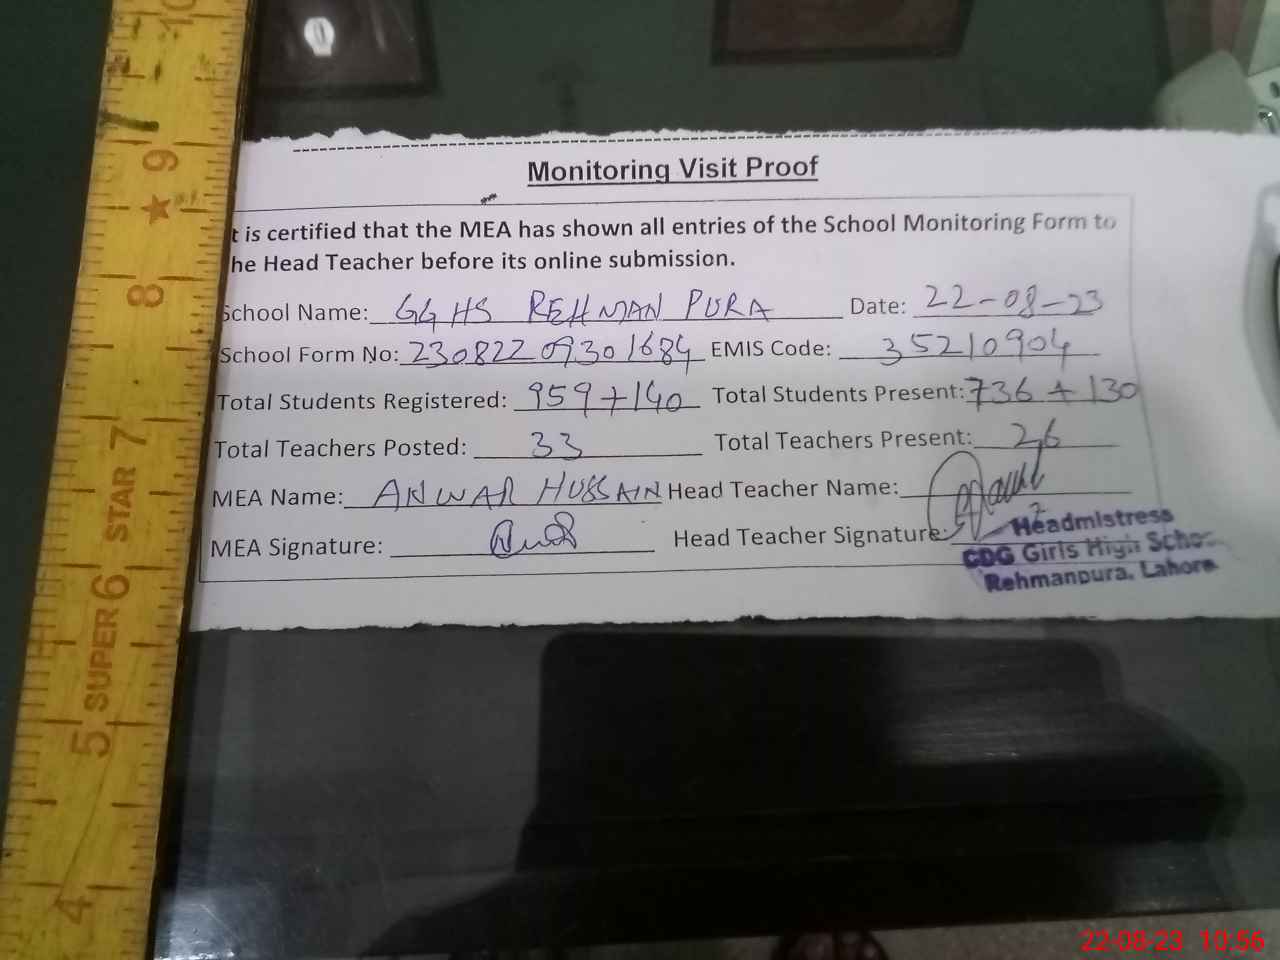 Monitoring Visit Proof
t is certified that the MEA has shown all entries of the School Monitoring Form to
he Head Teacher before its online submission.
School Name: GGHS REHMAN PURA Date: 22-08-23
School Form No: 230822 09301684 EMIS Code: 35210904
Total Students Registered: 959+140 Total Students Present: 736+130
Total Teachers Posted: 33 Total Teachers Present: 26
MEA Name: ANWAR HUSSAIN Head Teacher Name:
MEA Signature: Head Teacher Signature:
Headmistress
CDG Girls High Schoo
Rehmanpura, Lahore
4 5 SUPER 6 STAR 7 8 9 10
22-08-23 10:56